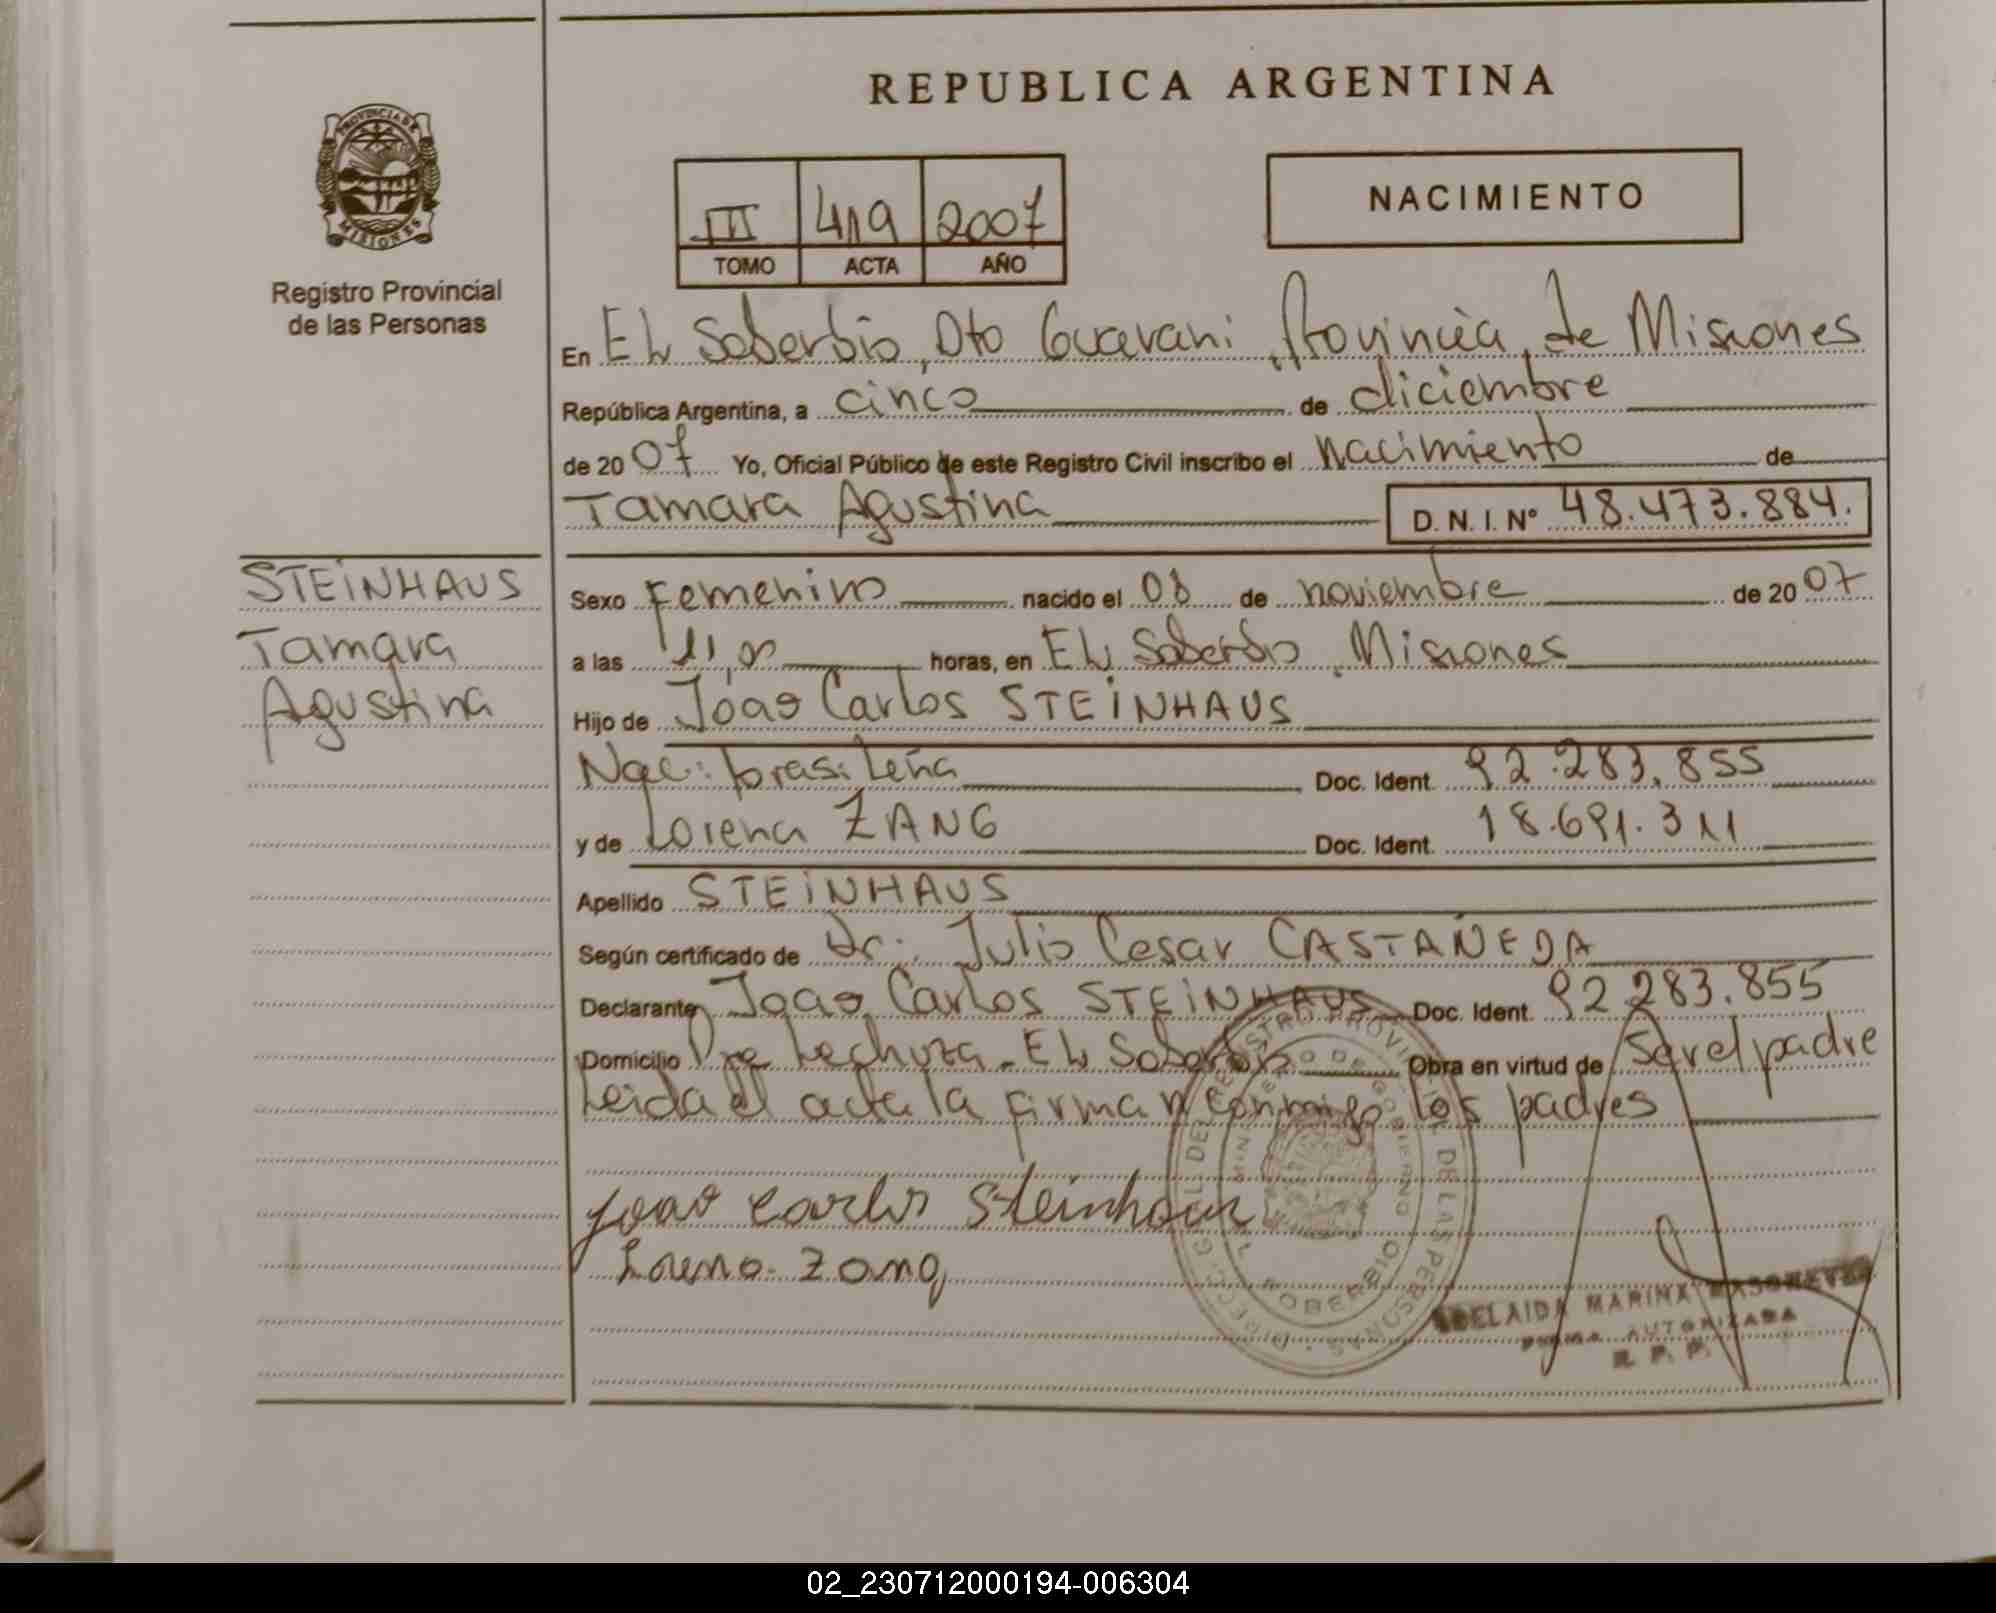 REPUBLICA ARGENTINA
PROVINCIA DE MISIONES
Registro Provincial
de las Personas
III 419 2007
TOMO ACTA AÑO
NACIMIENTO
En EL Soberbio, Dto Guarani, Provincia de Misiones
República Argentina, a cinco de diciembre
de 2007 Yo, Oficial Público de este Registro Civil inscribo el Nacimiento de
Tamara Agustina D. N. I. Nº 48.473.884.
STEINHAUS
Tamara
Agustina
Sexo Femenino nacido el 08 de noviembre de 2007
a las 11,00 horas, en EL Soberbio, Misiones
Hijo de Joao Carlos STEINHAUS
Nac: brasileña Doc. Ident. 92.283.855
y de Lorena ZANG Doc. Ident. 18.691.311
Apellido STEINHAUS
Según certificado de Dr. Julio Cesar CASTAÑEDA
Declarante Joao Carlos STEINHAUS Doc. Ident. 92.283.855
Domicilio Lechuza - EL Soberbio Obra en virtud de Ser el padre
Leida el acta la firman conmigo los padres
Joao Carlos Steinhaus
Lorena Zang
DIRECC. GRAL. DEL REGISTRO PROVINCIAL DE LAS PERSONAS
MINISTERIO DE GOBIERNO
EL SOBERBIO
ADELAIDA MARINA
FIRMA AUTORIZADA
R. P. P.
02_230712000194-006304